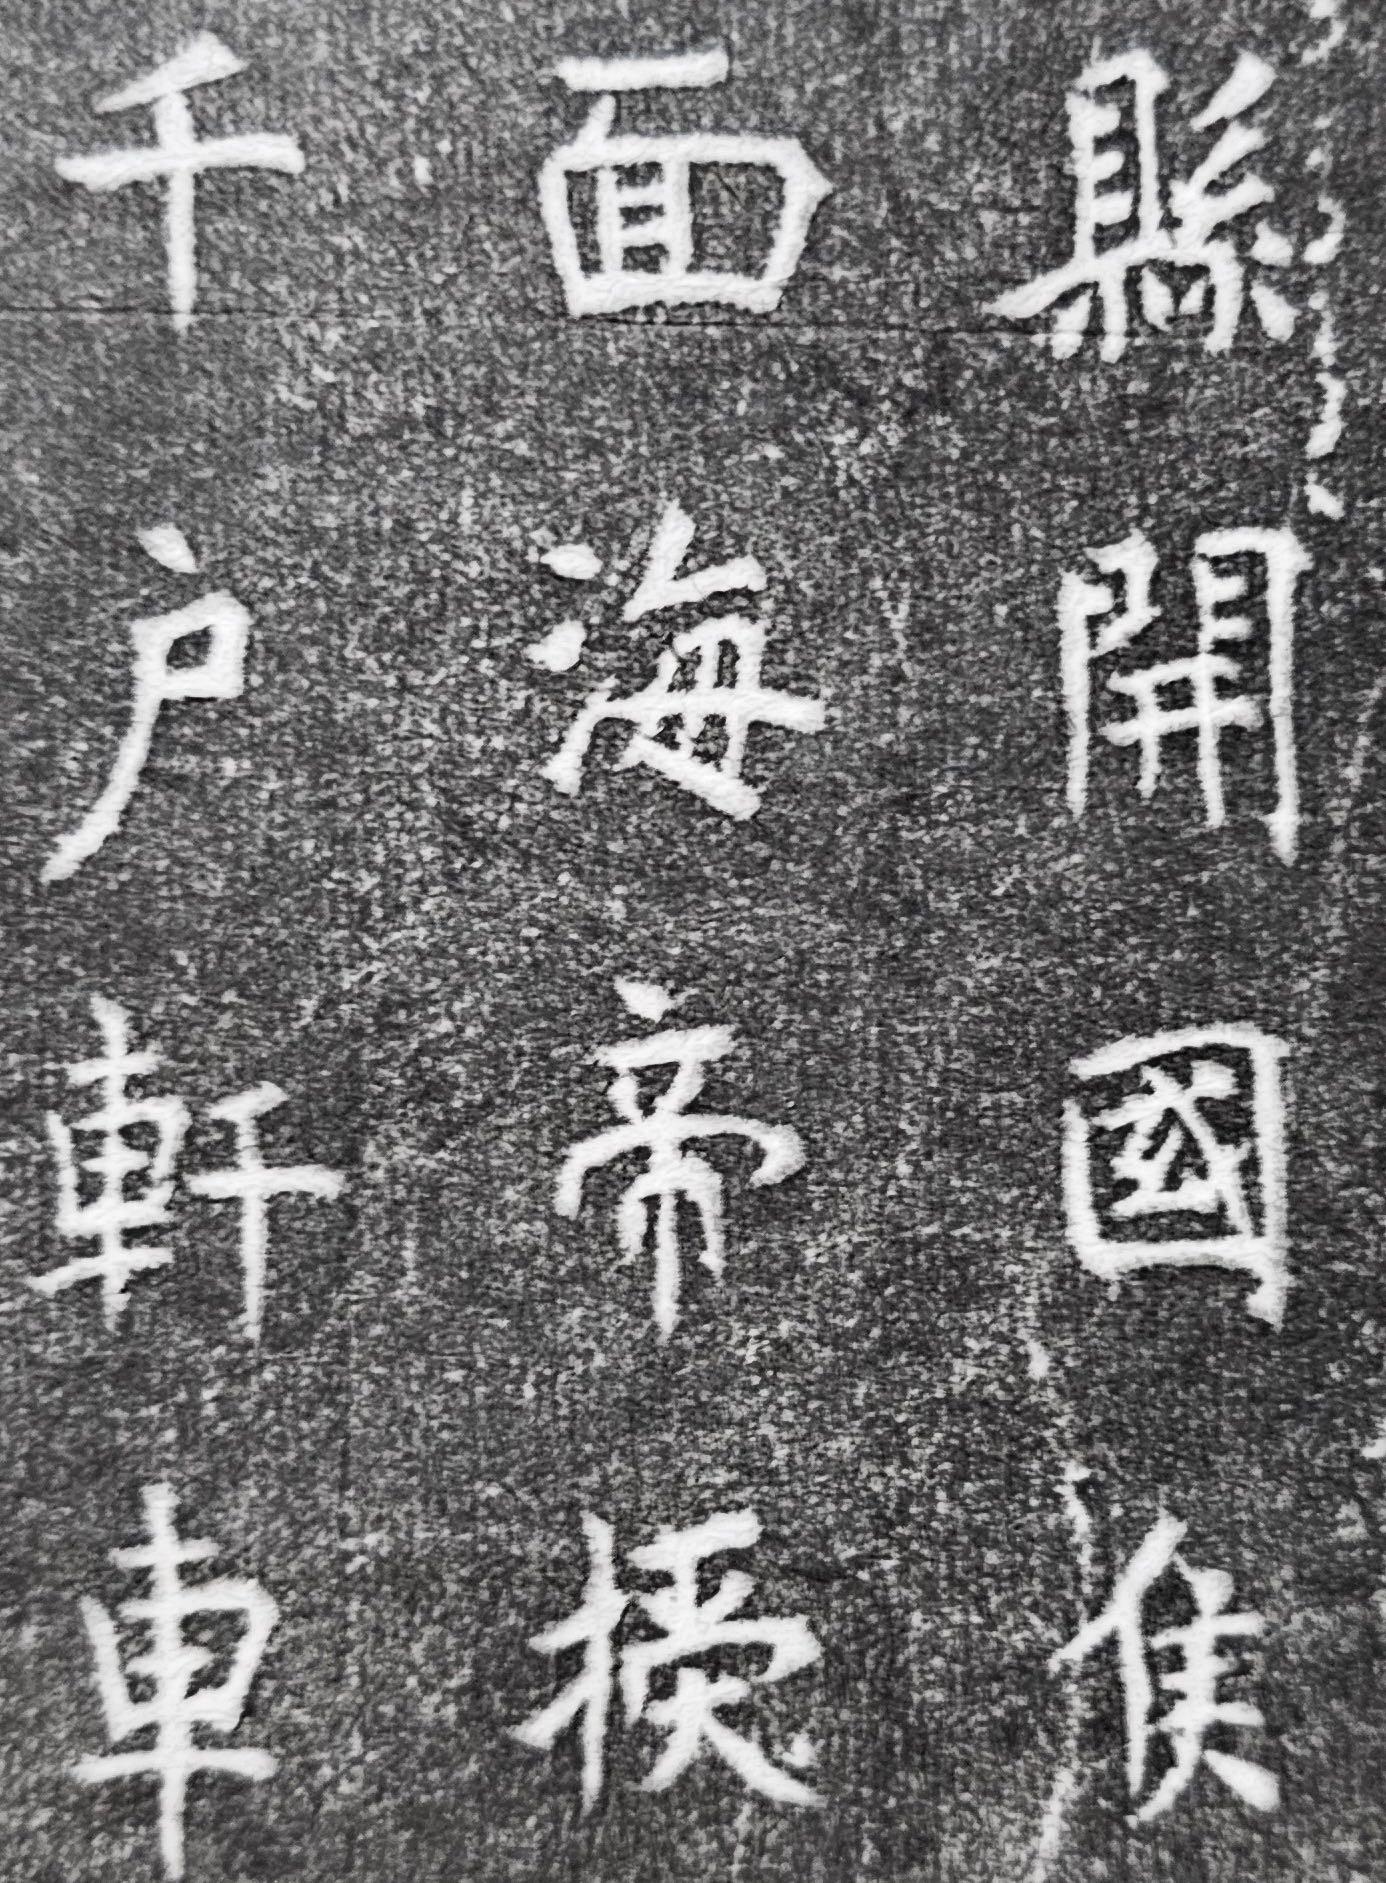 縣開國侯
面海帝授
千户軒車